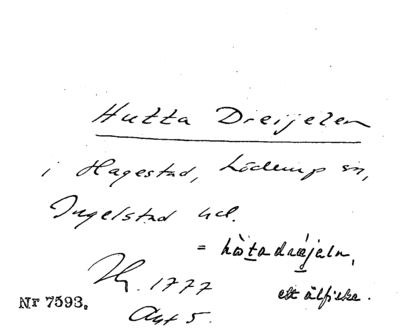 Hutta Dreijelen
i Hagestad, Löderup sn,
Ingelstad hd.
= hòtadraijeln,
1777
ett ålfiske.
Nr 7593.
Akt 5.